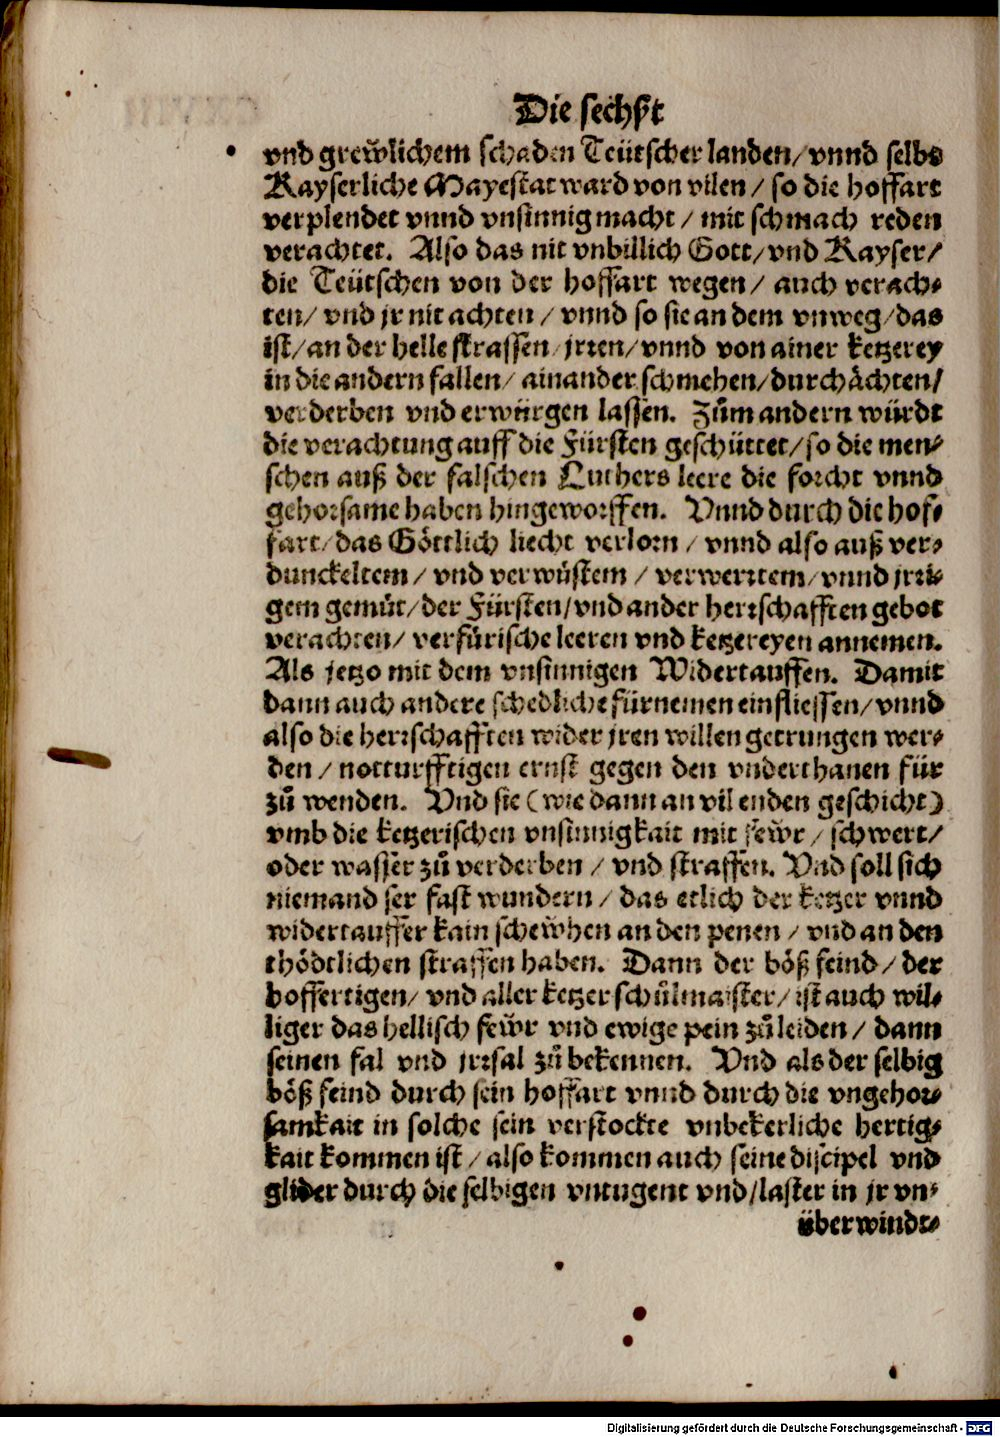 Die sechst
vnd grewͤlichem schaden Teütscher landen / vnnd selbs
Kayserliche Mayestat ward von vilen / so die hoffart
verplendet vnnd vnsinnig macht / mit schmach reden
verachtet. Also das nit vnbillich Gott / vnd Kayser /
die Teütschen von der hoffart wegen / auch verach⸗
ten / vnd jr nit achten / vnnd so sie an dem vnweg / das
ist / an der helle strassen / jrꝛen / vnnd von ainer ketzerey
in die andern fallen / ainander schmehen / durchåchten /
verderben vnd erwürgen lassen. Zům andern würdt
die verachtung auff die Fürsten geschüttet / so die men⸗
schen auß der falschen Luthers leere die forcht vnnd
gehorsame haben hingeworffen. Vnnd durch die hof⸗
fart / das Göttlich liecht verlorn / vnnd also auß ver⸗
dunckeltem / vnd verwůstem / verwerꝛtem / vnnd jrꝛi⸗
gem gemüt / der Fürsten / vnd ander herꝛschafften gebot
verachten / verfůrische leeren vnd ketzereyen annemen.
Als jetzo mit dem vnsinnigen Widertauffen. Damit
dann auch andere schedliche fürnemen einfliessen / vnnd
also die herꝛschafften wider jren willen getrungen wer⸗
den / notturfftigen ernst gegen den vnderthanen für
zů wenden. Vnd sie (wie dann an vil enden geschicht)
vmb die ketzerischen vnsinnigkait mit fewͤr / schwert /
oder wasser zů verderben / vnd straffen. Vnd soll sich
niemand ser fast wundern / das etlich der ketzer vnnd
widertauffer kain schewͤhen an den penen / vnd an den
thödtlichen straffen haben. Dann der böß feind / der
hoffertigen / vnd aller ketzer schůlmaister / ist auch wil⸗
liger das hellisch fewͤr vnd ewige pein zů leiden / dann
seinen fal vnd jrꝛsal zů bekennen. Vnd als der selbig
böß feind durch sein hoffart vnnd durch die vngehor⸗
samkait in solche sein verstockte vnbekerliche hertig⸗
kait kommen ist / also kommen auch seine discipel vnd
glider durch die selbigen vntugent vnd / laster in jr vn⸗
überwindt⸗
Digitalisierung gefördert durch die Deutsche Forschungsgemeinschaft - DFG